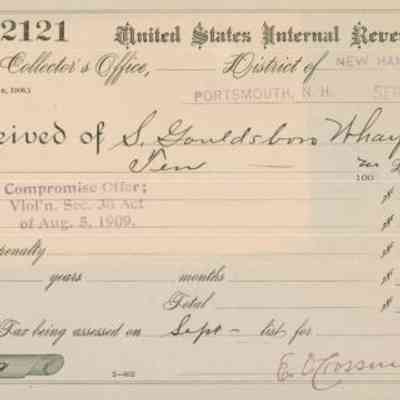 2121 United States Internal Reve
Collector's Office, District of NEW HAM
, 1906.)
PORTSMOUTH, N. H. SEP
eived of S. Gouldsboro Wharf
Ten — no/100
Compromise Offer;
Viol'n. Sec. 38 Act
of Aug. 5, 1909.
$
$
penalty $
years months $
Total $
Tax being assessed on Sept – list for
2-802